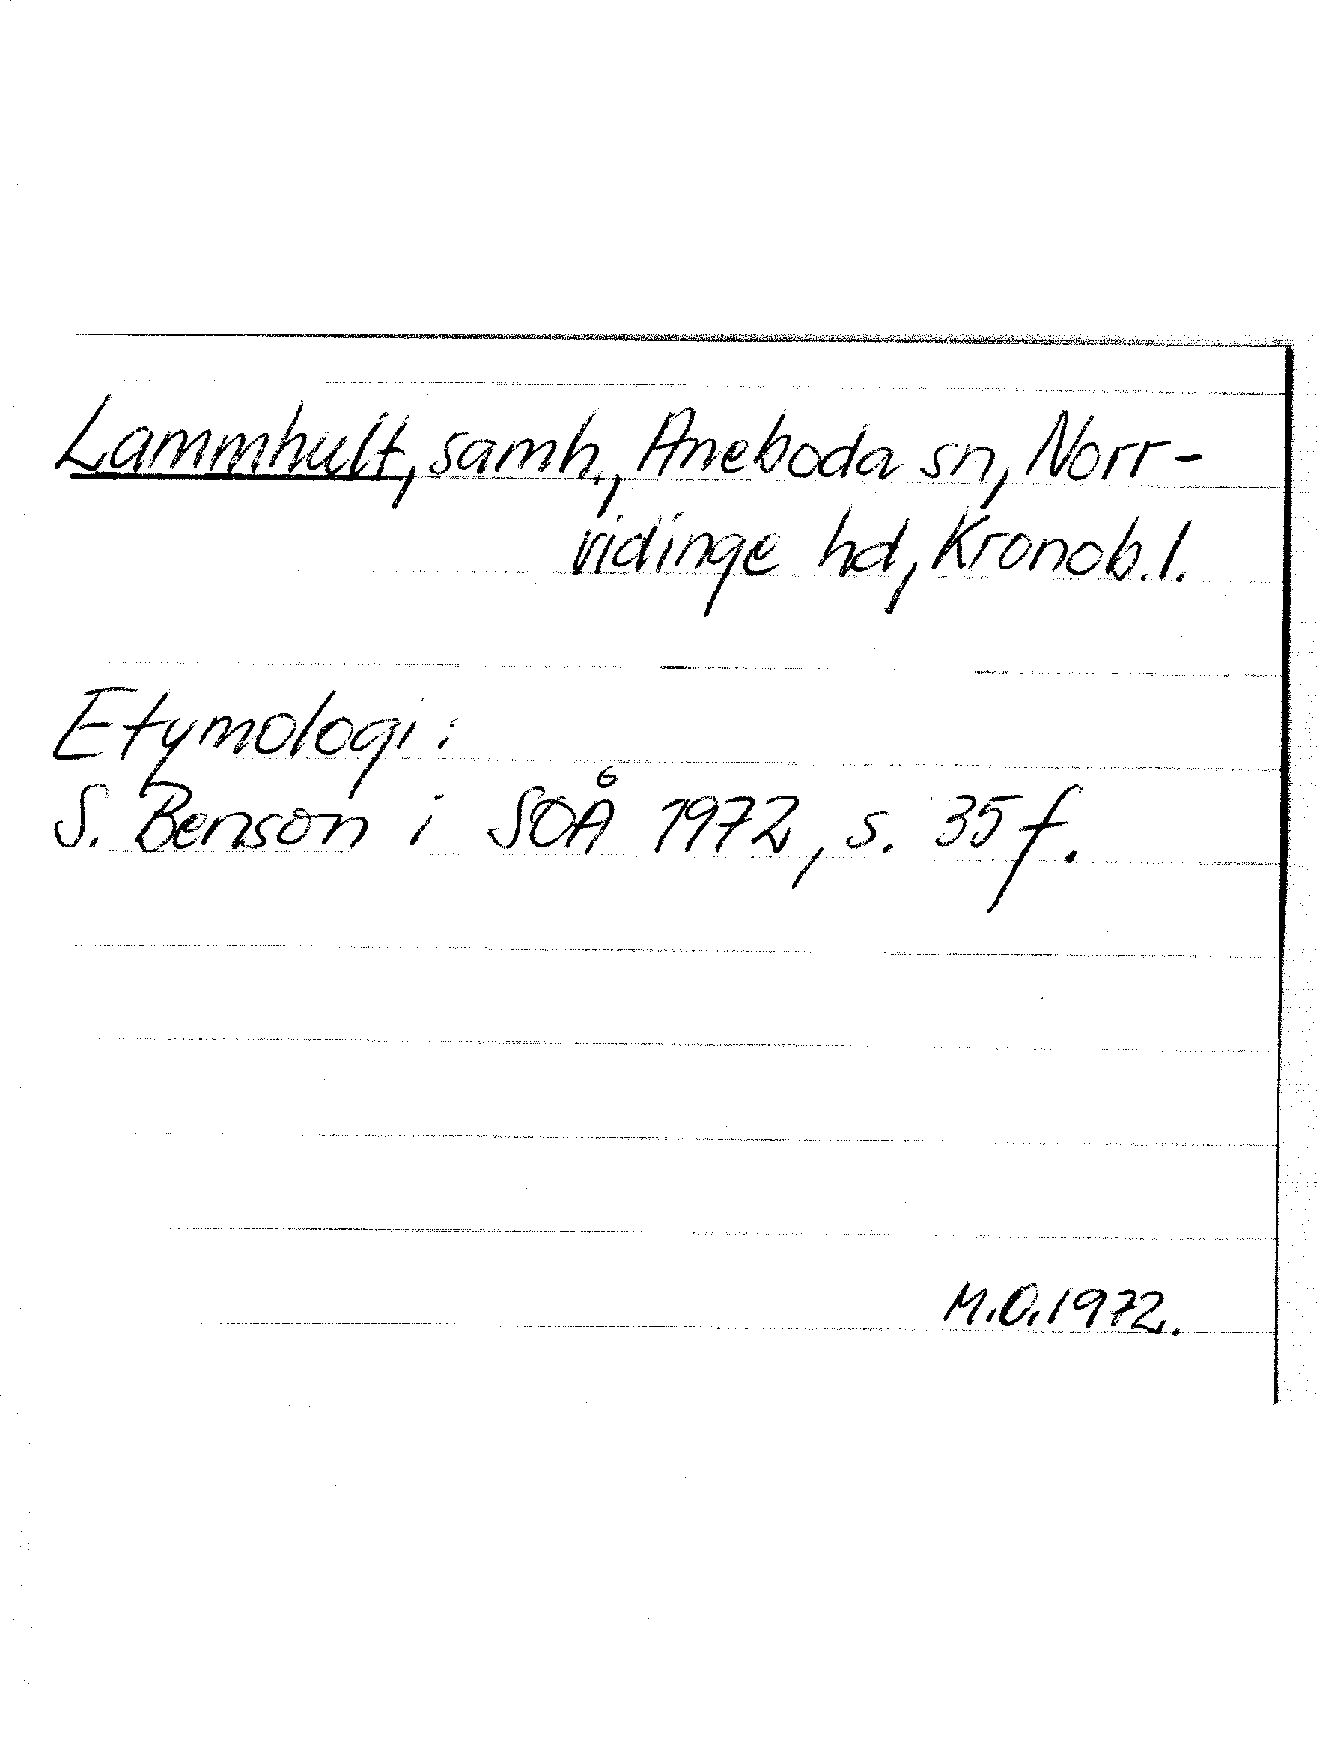 Lammhult, samh., Aneboda sn, Norr-
vidinge hd, Kronob. l.
Etymologi:
S. Benson i SOÅ 1972, s. 35 f.
M.O. 1972.